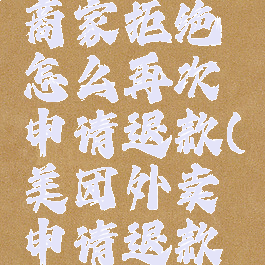 商家拒绝
怎么再次
申请退款(
美团外卖
申请退款